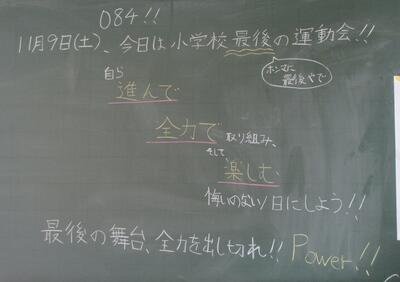 084!!
11月9日(土)、今日は小学校最後の運動会!!
ホンマに
最後やで
自ら
進んで
全力で取り組み、
そして、
楽しむ
悔いのない1日にしよう!!
最後の舞台、全力を出し切れ!! Power!!